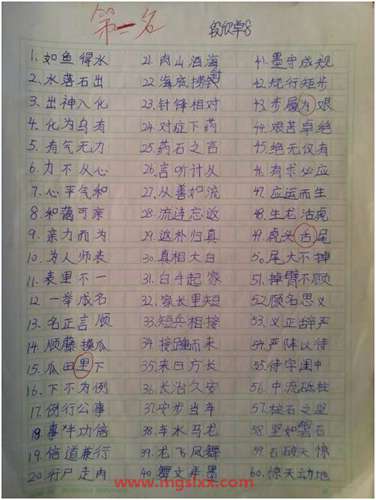 第一名
1. 如鱼得水
2. 水落石出
3. 出神入化
4. 化为乌有
5. 有气无力
6. 力不从心
7. 心平气和
8. 和蔼可亲
9. 亲力而为
10. 为人师表
11. 表里不一
12. 一举成名
13. 名正言顺
14. 顺藤摸瓜
15. 瓜田里下
16. 下不为例
17. 例行公事
18. 事半功倍
19. 倍道兼行
20. 行尸走肉
21. 肉山酒海
22. 海底捞针
23. 针锋相对
24. 对症下药
25. 药石之言
26. 言听计从
27. 从善如流
28. 流连忘返
29. 返朴归真
30. 真相大白
31. 白手起家
32. 家长里短
33. 短兵相接
34. 接踵而来
35. 来日方长
36. 长治久安
37. 安步当车
38. 车水马龙
39. 龙飞凤舞
40. 舞文弄墨
41. 墨守成规
42. 规行矩步
43. 步履为艰
44. 艰苦卓绝
45. 绝无仅有
46. 有求必应
47. 应运而生
48. 生龙活虎
49. 虎头舌尾
50. 尾大不掉
51. 掉臂不顾
52. 顾名思义
53. 义正辞严
54. 严阵以待
55. 待字闺中
56. 中流砥柱
57. 柱石之坚
58. 坚如磐石
59. 石破天惊
60. 惊天动地
www.mgslxx.com